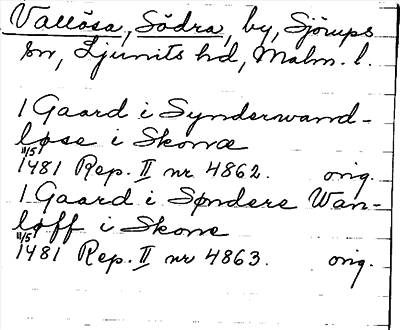 Vallösa, Södra, by, Sjörups
sn, Ljunits hd, Malm. l.
1 Gaard i Synderwand-
løse i Skonæ
11/5 1481 Rep. II nr 4862. orig.
1 Gaard i Søndere Wan-
løff i Skone
11/5 1481 Rep. II nr 4863. orig.